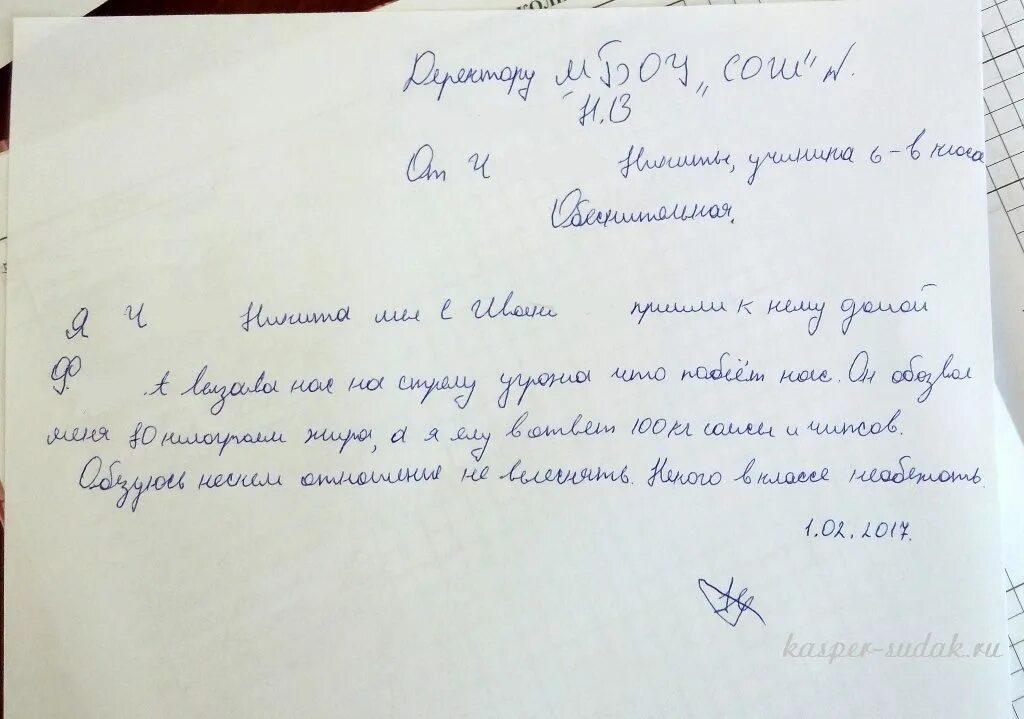 Деректору МБОУ „СОШ" №
Н.В
От Ч Никиты, ученика 6-в класа
Обеснительная.
Я Ч Никита мы с Иваном пришли к нему домой
А вызвал нас на стрелу угрожа что побиёт нас. Он обозвал
меня 80 килограмм жира, а я ему в ответ 100 кг и чипсов.
Обезуюсь нескем отношение не выеснять. Некого в классе необежать.
1.02.2017.
kasper-sudak.ru